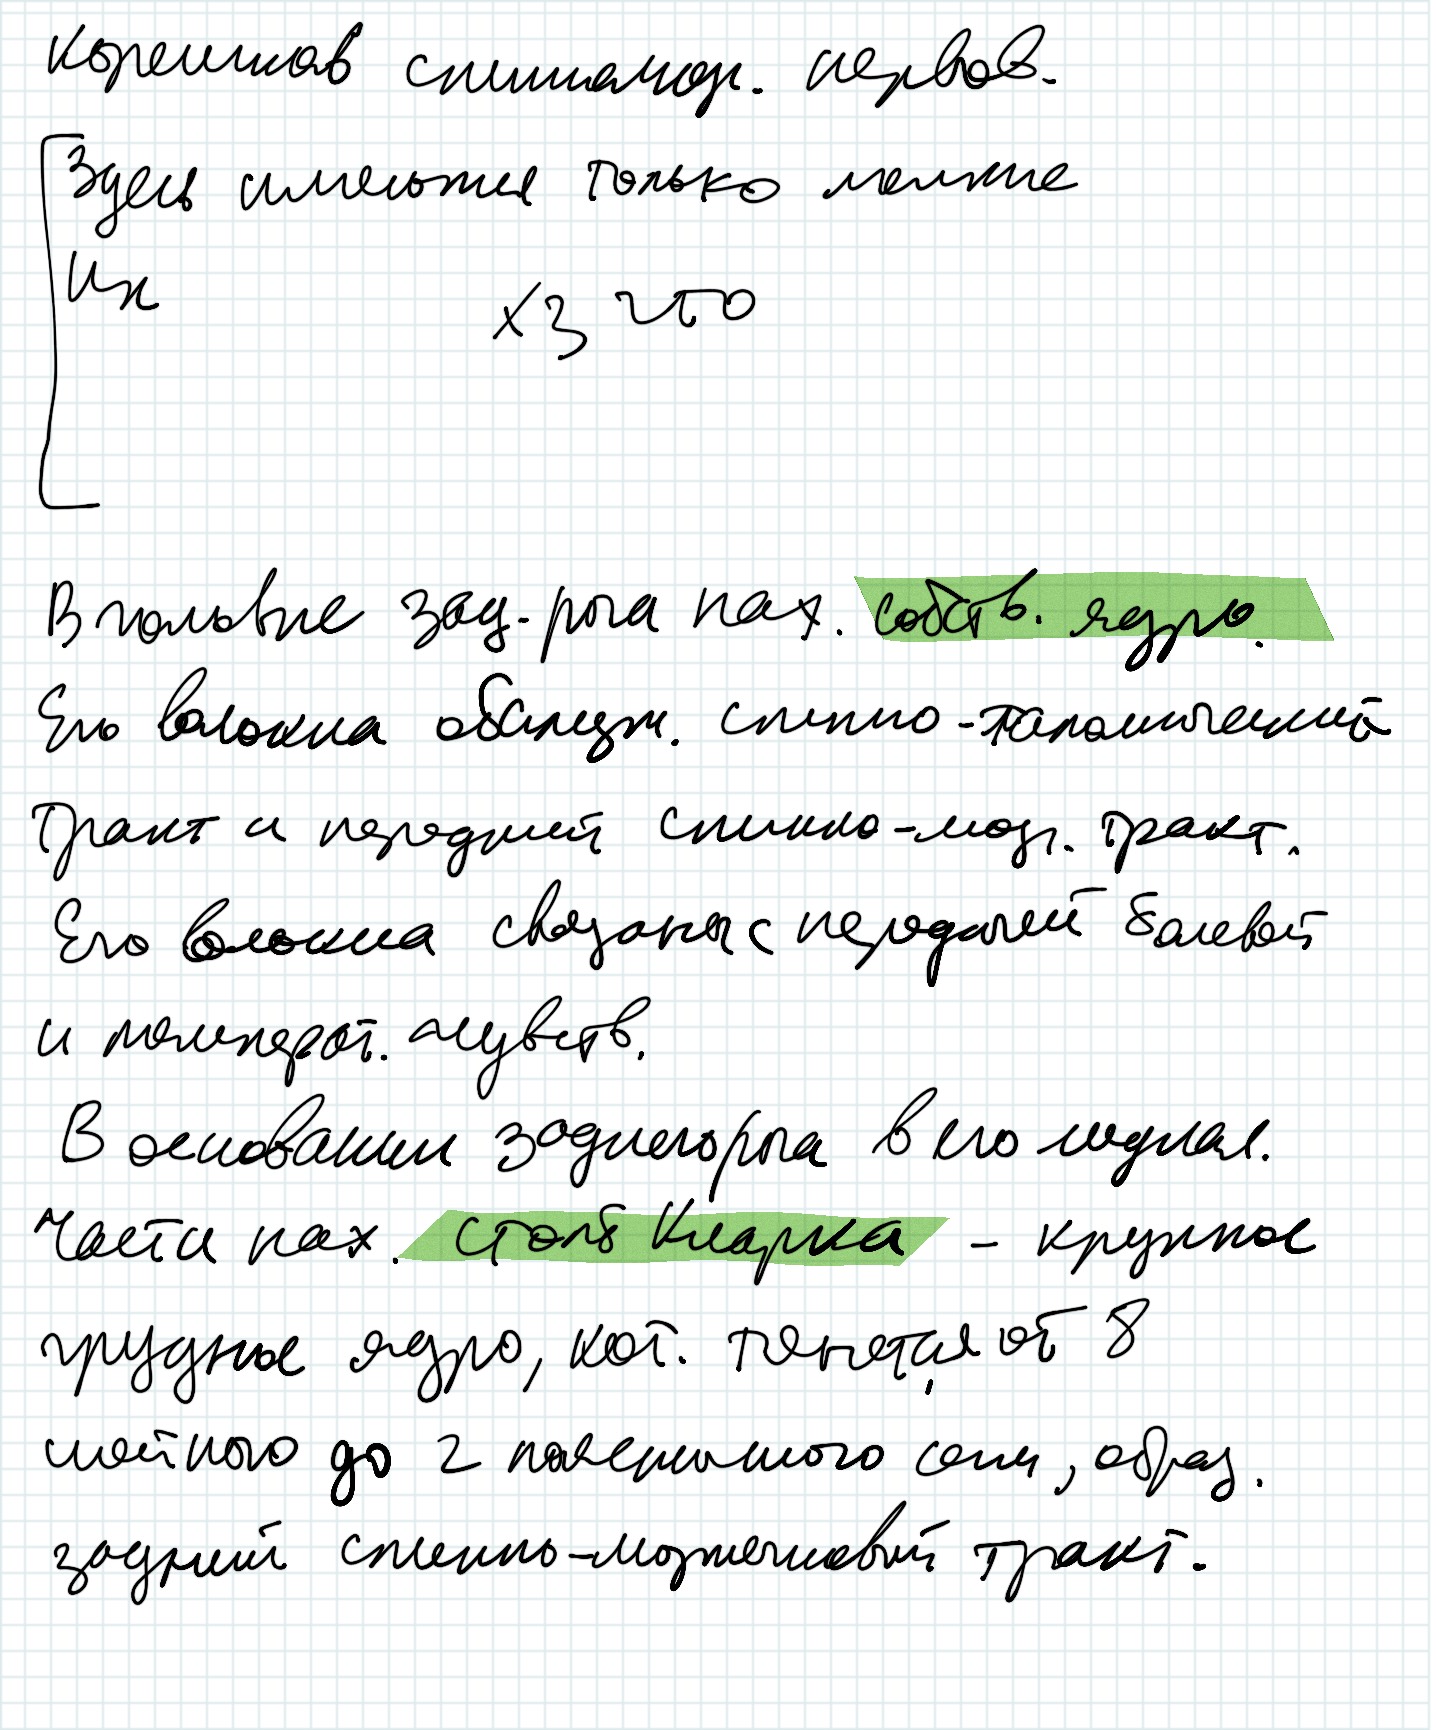 корешков спинномозг. нервов.
Здесь имеются только мелкие
Их
хз что
В головке зад. рога нах. собств. ядро.
Его волокна обслуж. спинно-таламический
тракт и передний спинно-мозг. тракт.
Его волокна связаны с передачей болевой
и температ. чувств.
В основании заднего рога в его медиал.
части нах. столб Кларка - крупное
грудное ядро, кот. тянется от 8
шейного до 2 поясничного сегм, образ.
задний спинно-мозжечковый тракт.